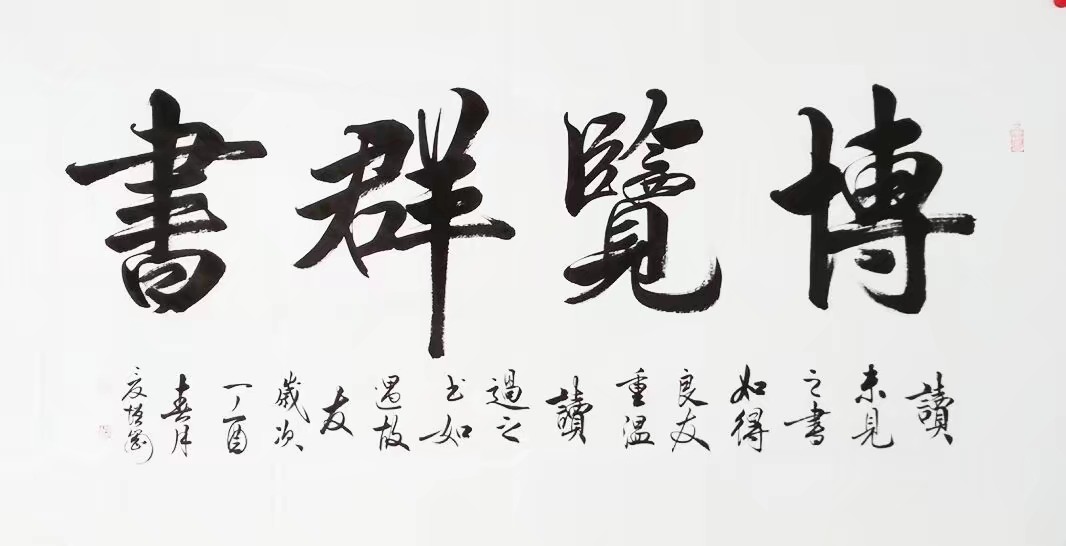 博覽群書
讀
未見
之書
如得
良友
重溫
讀
過之
书如
遇故
友
歲次
丁酉
春月